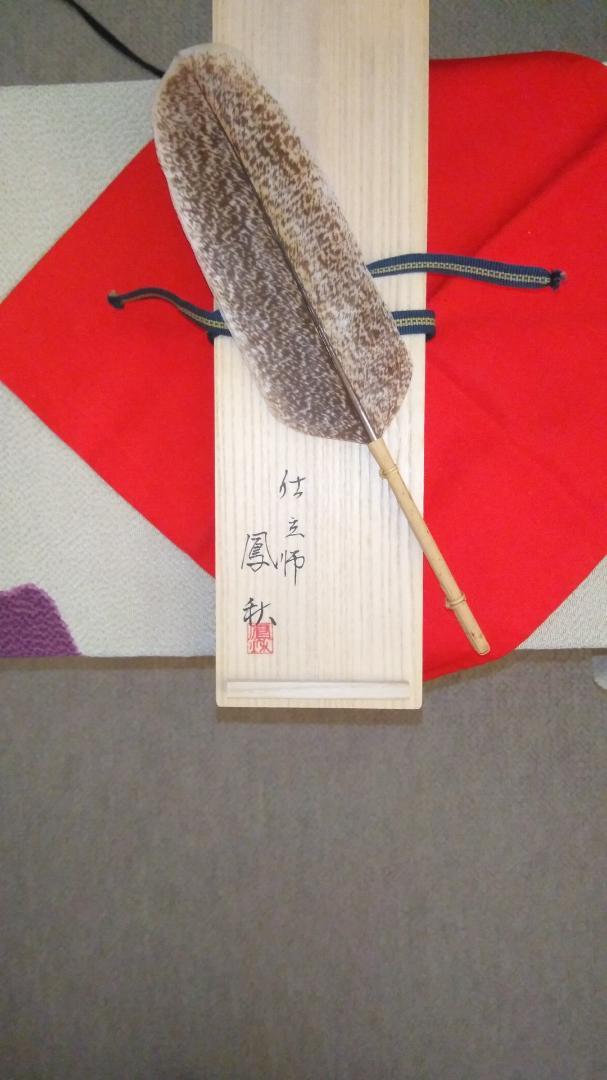 仕立師
鳳秋